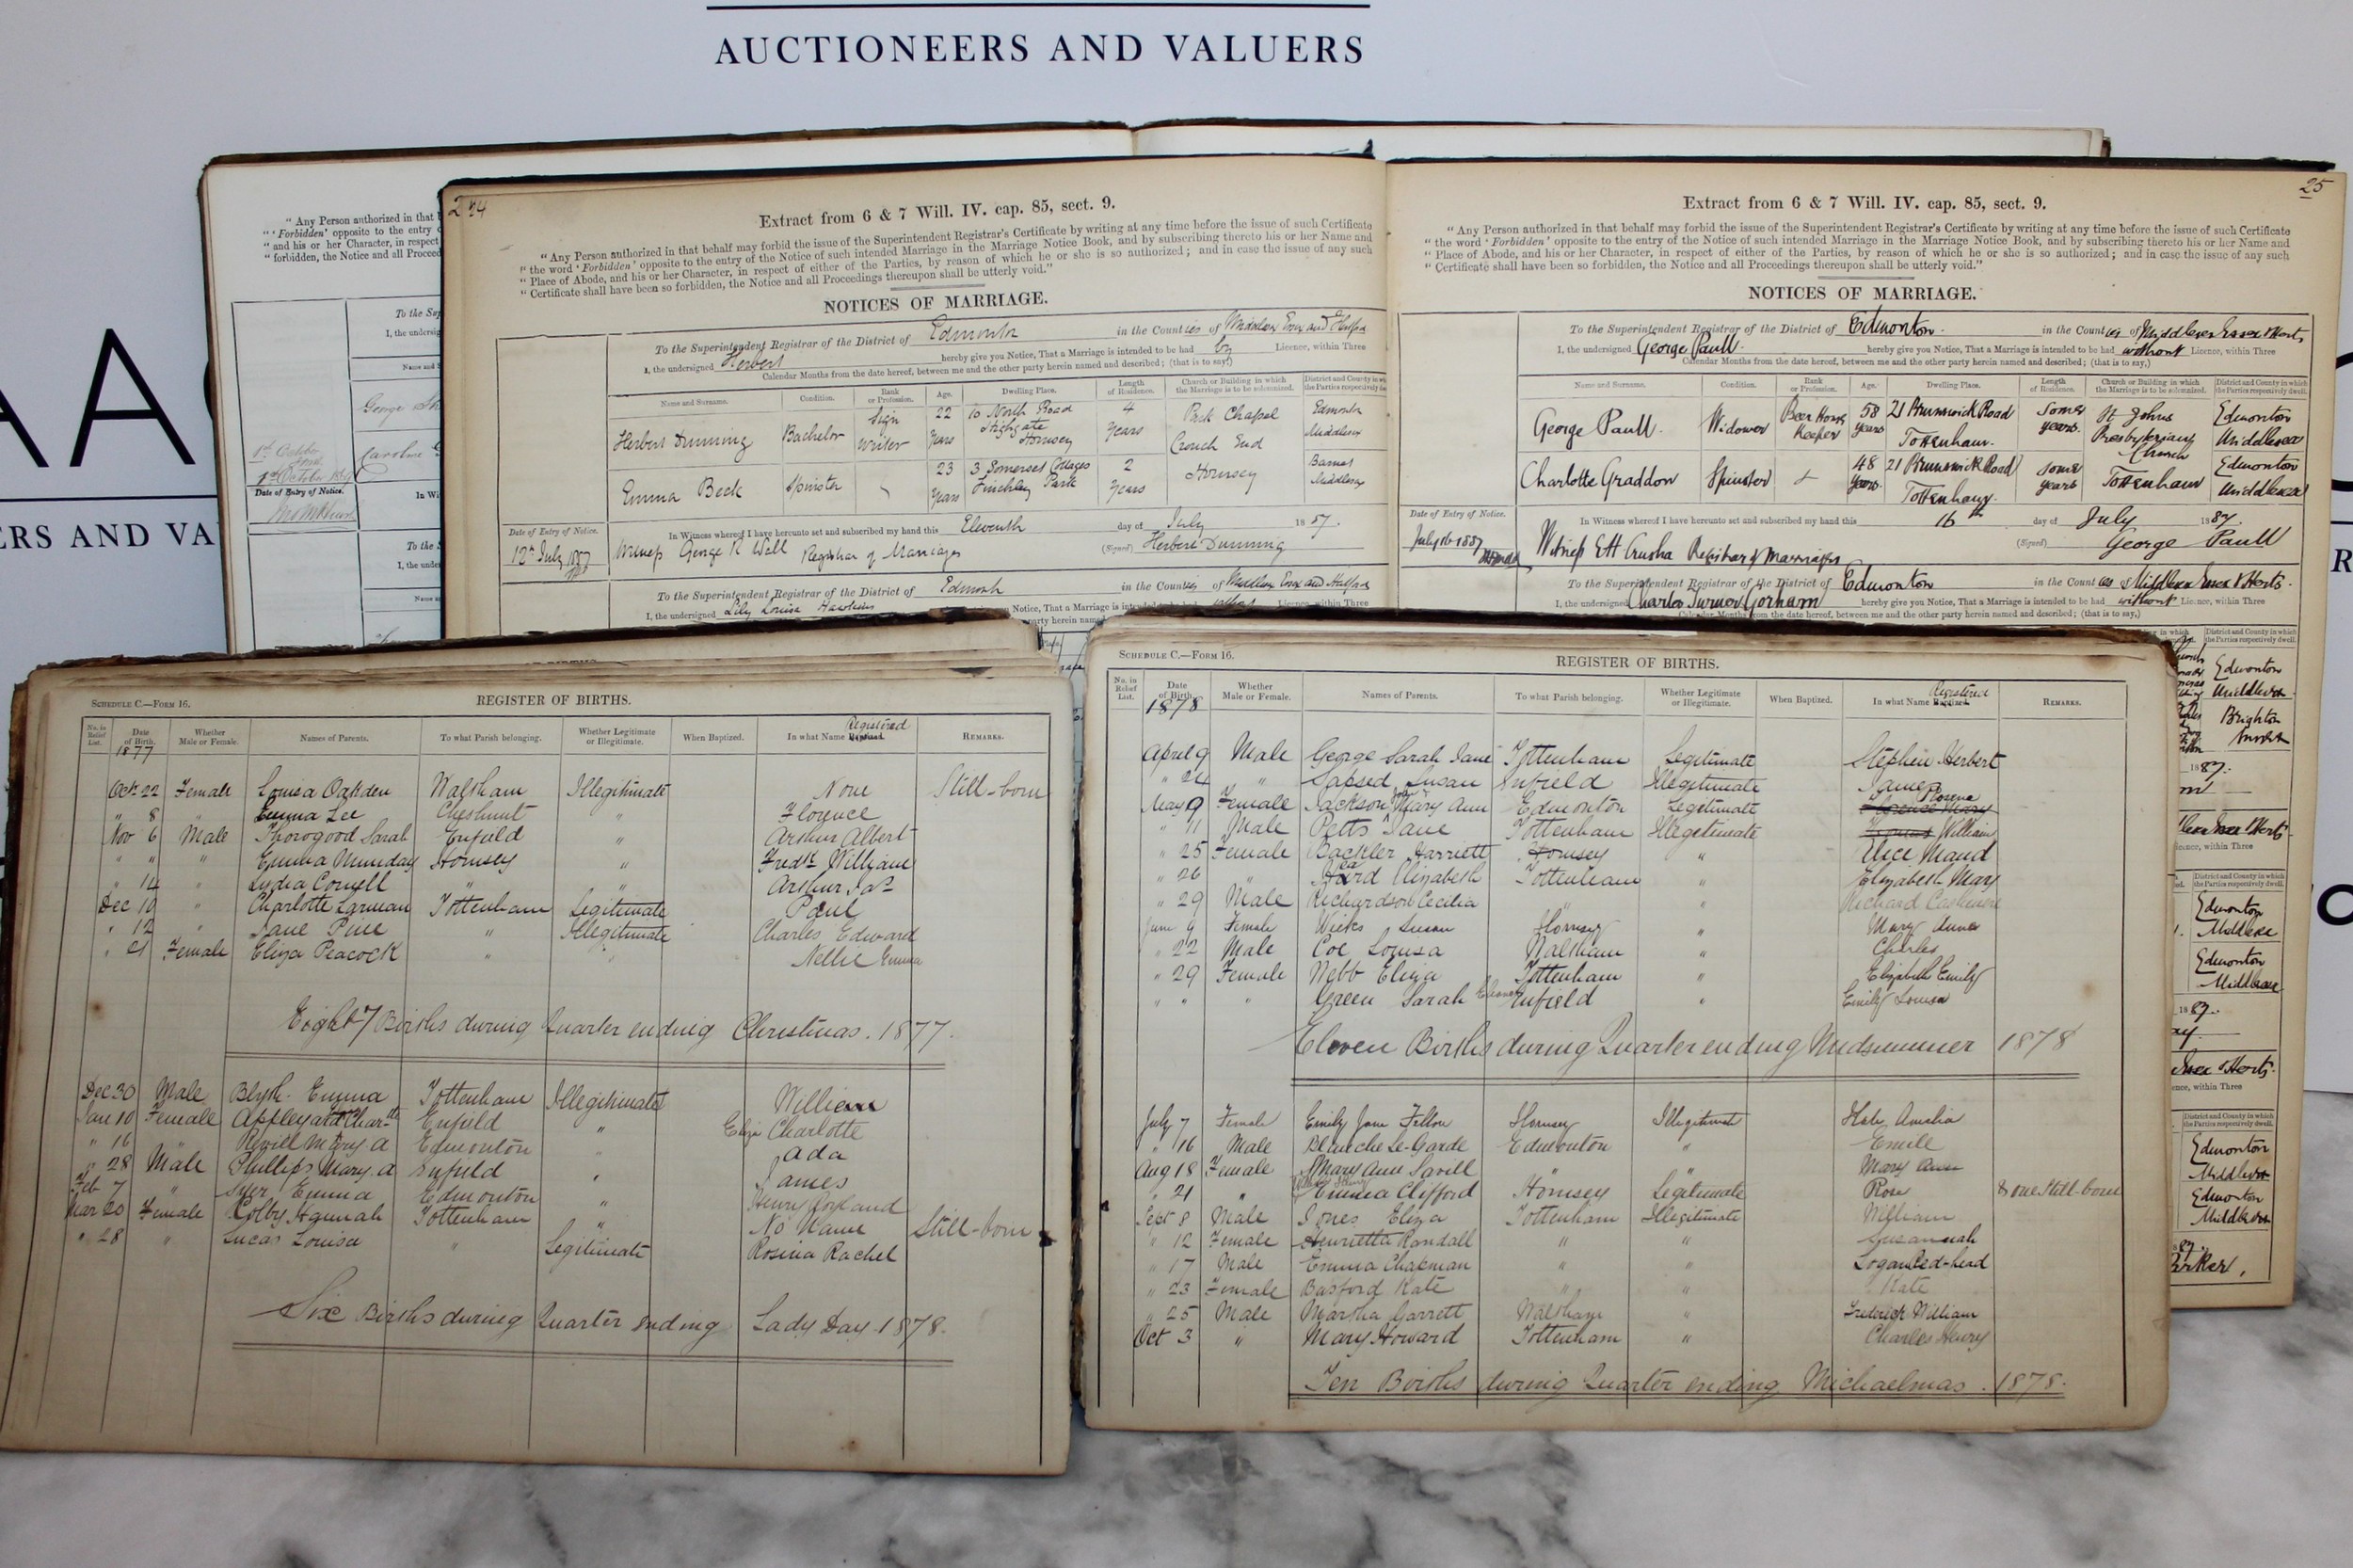 AUCTIONEERS AND VALUERS
AA
ERS AND VA
" Any Person authorized in that
" ' Forbidden' opposite to the entry
" and his or her Character, in respect
" forbidden, the Notice and all Proceed
To the Sup
I, the undersig
Name and
George
Caroline
Date of Entry of Notice.
In Wi
To the
I, the unde
24
Extract from 6 & 7 Will. IV. cap. 85, sect. 9.
" Any Person authorized in that behalf may forbid the issue of the Superintendent Registrar's Certificate by writing at any time before the issue of such Certificate
" the word ' Forbidden' opposite to the entry of the Notice of such intended Marriage in the Marriage Notice Book, and by subscribing thereto his or her Name and
" Place of Abode, and his or her Character, in respect of either of the Parties, by reason of which he or she is so authorized; and in case the issue of any such
" Certificate shall have been so forbidden, the Notice and all Proceedings thereupon shall be utterly void."
NOTICES OF MARRIAGE.
To the Superintendent Registrar of the District of Edmonton in the Counties of Middlesex Essex and Hertford
I, the undersigned Herbert hereby give you Notice, That a Marriage is intended to be had by Licence, within Three
Calendar Months from the date hereof, between me and the other party herein named and described; (that is to say,)
Name and Surname. Condition. Rank or Profession. Age. Dwelling Place. Length of Residence. Church or Building in which the Marriage is to be solemnized. District and County in which the Parties respectively dwell.
Herbert Dunning Bachelor Sign Writer 22 Years 10 North Road Highgate Hornsey 4 Years Park Chapel Crouch End Edmonton Middlesex
Emma Beck Spinster 23 Years 3 Somerset Cottages Finchley Park 2 Years Hornsey Barnet Middlesex
Date of Entry of Notice.
In Witness whereof I have hereunto set and subscribed my hand this Eleventh day of July 1887.
12th July 1887 Witness George R Wall Registrar of Marriages (Signed) Herbert Dunning
To the Superintendent Registrar of the District of Edmonton in the Counties of Middlesex Essex and Hertford
I, the undersigned Lily Louisa Hawkins Notice, That a Marriage is intended to be had without Licence, within Three
25
Extract from 6 & 7 Will. IV. cap. 85, sect. 9.
" Any Person authorized in that behalf may forbid the issue of the Superintendent Registrar's Certificate by writing at any time before the issue of such Certificate
" the word ' Forbidden' opposite to the entry of the Notice of such intended Marriage in the Marriage Notice Book, and by subscribing thereto his or her Name and
" Place of Abode, and his or her Character, in respect of either of the Parties, by reason of which he or she is so authorized; and in case the issue of any such
" Certificate shall have been so forbidden, the Notice and all Proceedings thereupon shall be utterly void."
NOTICES OF MARRIAGE.
To the Superintendent Registrar of the District of Edmonton. in the Counties of Middlesex Essex & Herts
I, the undersigned George Paull. hereby give you Notice, That a Marriage is intended to be had without Licence, within Three
Calendar Months from the date hereof, between me and the other party herein named and described; (that is to say,)
Name and Surname. Condition. Rank or Profession. Age. Dwelling Place. Length of Residence. Church or Building in which the Marriage is to be solemnized. District and County in which the Parties respectively dwell.
George Paull. Widower Beer House Keeper 58 years 21 Brunswick Road Tottenham. Some years. St Johns Presbyterian Church Edmonton Middlesex
Charlotte Graddon Spinster 48 years. 21 Brunswick Road Tottenham. some years Tottenham Edmonton Middlesex
Date of Entry of Notice.
In Witness whereof I have hereunto set and subscribed my hand this 16th day of July 1887.
July 16 1887 Witness EH Crusha Registrar of Marriages (Signed) George Paull
To the Superintendent Registrar of the District of Edmonton in the Counties Middlesex Essex & Herts.
I, the undersigned Charles Turner Gorham hereby give you Notice, That a Marriage is intended to be had without Licence, within Three
Calendar Months from the date hereof, between me and the other party herein named and described; (that is to say,)
District and County in which the Parties respectively dwell.
Edmonton
Middlesex
Brighton
1887.
District and County in which the Parties respectively dwell.
Edmonton
Middlesex
Edmonton
Middlesex
District and County in which the Parties respectively dwell.
Edmonton
Middlesex
Edmonton
Middlesex
SCHEDULE C.—FORM 16.
REGISTER OF BIRTHS.
No. in Relief List. Date of Birth. Whether Male or Female. Names of Parents. To what Parish belonging. Whether Legitimate or Illegitimate. When Baptized. In what Name Baptized. Registered REMARKS.
1877
Oct 22 Female Louisa Oakden Waltham Illegitimate None Still-born
" 8 " Emma Lee Cheshunt " Florence
Nov 6 Male Thorogood Sarah Enfield " Arthur Albert
" " " Emma Munday Hornsey " Fredk William
" 14 " Lydia Conyell " " Arthur Jas
Dec 10 " Charlotte Larman Tottenham Legitimate Paul
" 12 " Jane Pine " Illegitimate Charles Edward
" 21 Female Eliza Peacock " " Nellie Emma
Eight 7 Births during Quarter ending Christmas. 1877.
Dec 30 Male Blyth. Emma Tottenham Illegitimate William
Jan 10 Female Appleyard Char-tte Enfield " Eliza Charlotte
" 16 " Revill Mary a Edmonton " Ada
" 28 Male Phillips Mary. a Enfield " James
Feb 7 " Syer Emma Edmonton " Henry
Mar 20 Female Colby Hannah Tottenham " No Name Still-born
" 28 " Lucas Louisa " Legitimate Rosina Rachel
Six Births during Quarter ending Lady Day. 1878.
SCHEDULE C.—FORM 16.
REGISTER OF BIRTHS.
No. in Relief List. Date of Birth. Whether Male or Female. Names of Parents. To what Parish belonging. Whether Legitimate or Illegitimate. When Baptized. In what Name Baptized. Registered REMARKS.
1878
April 9 Male George Sarah Jane Tottenham Legitimate Stephen Herbert
" 24 " Sapsed Susan Enfield Illegitimate James
May 9 Female Jackson Mary Ann Edmonton Legitimate Rosina
" 11 Male Petts Jane Tottenham Illegitimate Thomas William
" 25 Female Backler Harriett Hornsey " Alice Maud
" 26 " Elizabeth Tottenham " Elizabeth Mary
" 29 Male Richardson Cecilia " " Richard
June 9 Female Wicks Susan Hornsey " Mary Annes
" 22 Male Coe Louisa Waltham " Charles
" 29 Female Webb Eliza Tottenham " Elizabeth Emily
" " " Green Sarah Eleanor Enfield " Emily Louisa
Eleven Births during Quarter ending Midsummer 1878
July 7 Female Emily Jane Felton Hornsey Illegitimate Kate Amelia
" 16 Male Blanche Le-Garde Edmonton " Emile
Aug 18 Female Mary Ann Savill " " Mary Ann
" 21 " Emma Clifford Hornsey Legitimate Rose & one Still-born
Sept 8 Male Jones Eliza Tottenham Illegitimate William
" 12 Female Henrietta Randall " " Susannah
" 17 Male Emma Chapman " " Logan Red-head
" 23 Female Basford Kate " " Kate
" 25 Male Martha Garrett Waltham " Frederick William
Oct 3 " Mary Howard Tottenham " Charles Henry
Ten Births during Quarter ending Michaelmas. 1878.